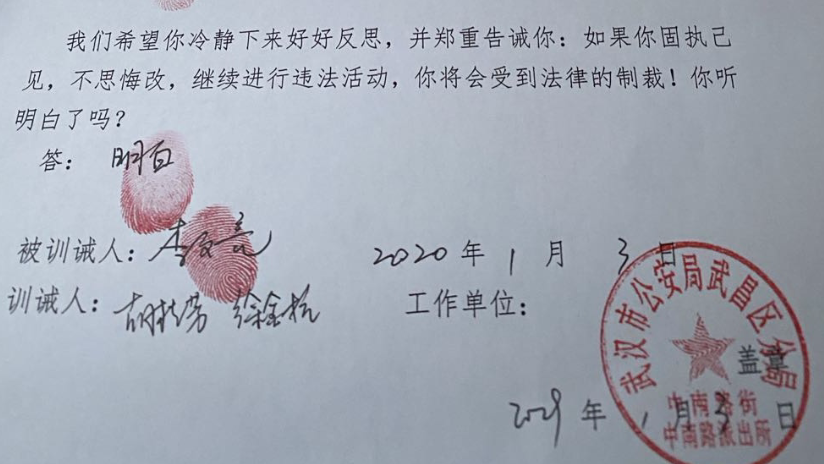 我们希望你冷静下来好好反思，并郑重告诫你：如果你固执己
见，不思悔改，继续进行违法活动，你将会受到法律的制裁！你听
明白了吗？
答：明白
被训诫人：李文亮 2020年1月3日
训诫人： 徐金杭 工作单位：
武汉市公安局武昌区分局
盖章
中南路街
中南路派出所
年1月3日